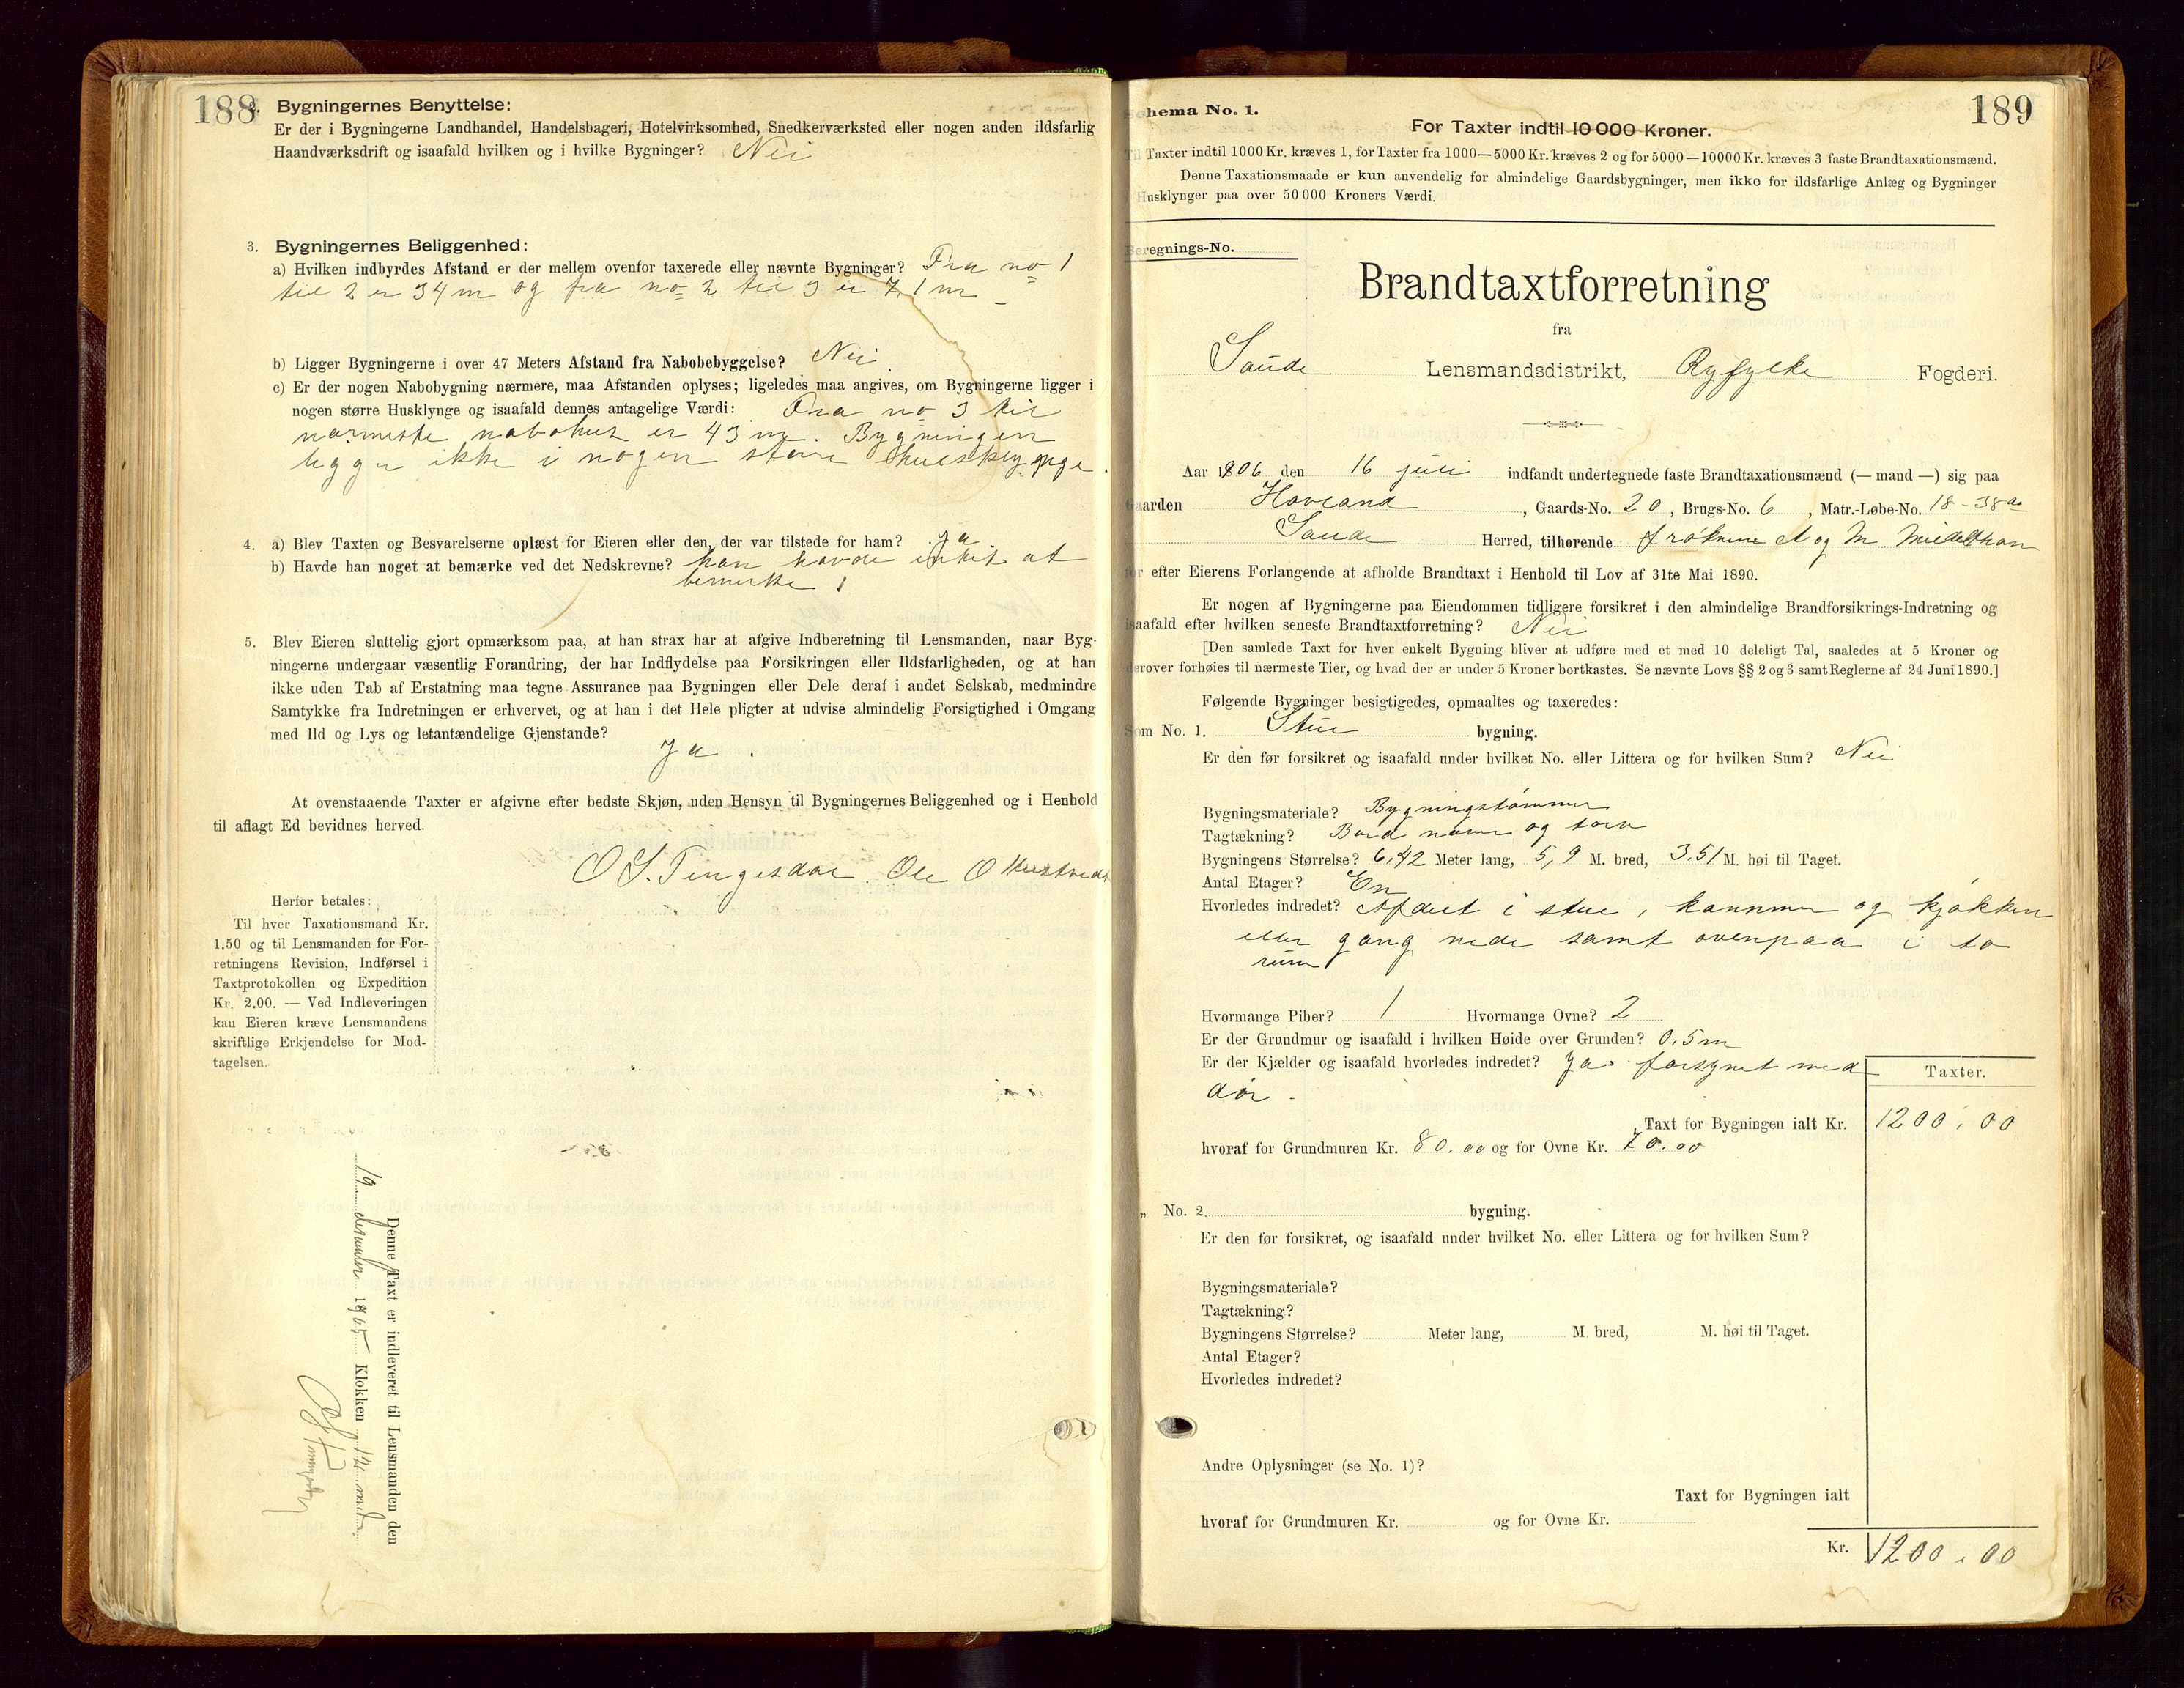 188
2. Bygningernes Benyttelse:
Er der i Bygningerne Landhandel, Handelsbageri, Hotelvirksomhed, Snedkerværksted eller nogen anden ildsfarlig
Haandværksdrift og isaafald hvilken og i hvilke Bygninger? Nei
3. Bygningernes Beliggenhed:
a) Hvilken indbyrdes Afstand er der mellem ovenfor taxerede eller nævnte Bygninger? Fra no 1
til 2 er 34 m og fra no 2 til 3 er 7,1 m
b) Ligger Bygningerne i over 47 Meters Afstand fra Nabobebyggelse? Nei.
c) Er der nogen Nabobygning nærmere, maa Afstanden oplyses; ligeledes maa angives, om Bygningerne ligger i
nogen større Husklynge og isaafald dennes antagelige Værdi: Fra no 3 til
nærmeste nabohus er 43 m. Bygningen
ligger ikke i nogen større husklynge.
4. a) Blev Taxten og Besvarelserne oplæst for Eieren eller den, der var tilstede for ham? Ja
b) Havde han noget at bemærke ved det Nedskrevne? han havde intet at
bemerke
5. Blev Eieren sluttelig gjort opmærksom paa, at han strax har at afgive Indberetning til Lensmanden, naar Byg-
ningerne undergaar væsentlig Forandring, der har Indflydelse paa Forsikringen eller Ildsfarligheden, og at han
ikke uden Tab af Erstatning maa tegne Assurance paa Bygningen eller Dele deraf i andet Selskab, medmindre
Samtykke fra Indretningen er erhvervet, og at han i det Hele pligter at udvise almindelig Forsigtighed i Omgang
med Ild og Lys og letantændelige Gjenstande?
Ja.
At ovenstaaende Taxter er afgivne efter bedste Skjøn, uden Hensyn til Bygningernes Beliggenhed og i Henhold
til aflagt Ed bevidnes herved.
O S. Tengesdal. Ole O Hustvedt
Herfor betales:
Til hver Taxationsmand Kr.
1.50 og til Lensmanden for For-
retningens Revision, Indførsel i
Taxtprotokollen og Expedition
Kr. 2.00. — Ved Indleveringen
kan Eieren kræve Lensmandens
skriftlige Erkjendelse for Mod-
tagelsen.
Denne Taxt er indleveret til Lensmanden den
19 desember 1905 Klokken 12 mid.
189
Schema No. 1.
For Taxter indtil 10 000 Kroner.
Til Taxter indtil 1000 Kr. kræves 1, for Taxter fra 1000—5000 Kr. kræves 2 og for 5000—10000 Kr. kræves 3 faste Brandtaxationsmænd.
Denne Taxationsmaade er kun anvendelig for almindelige Gaardsbygninger, men ikke for ildsfarlige Anlæg og Bygninger
Husklynger paa over 50 000 Kroners Værdi.
Beregnings-No.
Brandtaxtforretning
fra
Saude Lensmandsdistrikt, Ryfylke Fogderi.
Aar 1906 den 16 juli indfandt undertegnede faste Brandtaxationsmænd (— mand —) sig paa
Gaarden Hovland, Gaards-No. 20, Brugs-No. 6, Matr.-Løbe-No. 18-38
Saude Herred, tilhørende frøknene A og M
for efter Eierens Forlangende at afholde Brandtaxt i Henhold til Lov af 31te Mai 1890.
Er nogen af Bygningerne paa Eiendommen tidligere forsikret i den almindelige Brandforsikrings-Indretning og
isaafald efter hvilken seneste Brandtaxtforretning? Nei
[Den samlede Taxt for hver enkelt Bygning bliver at udføre med et med 10 deleligt Tal, saaledes at 5 Kroner og
derover forhøies til nærmeste Tier, og hvad der er under 5 Kroner bortkastes. Se nævnte Lovs §§ 2 og 3 samt Reglerne af 24 Juni 1890.]
Følgende Bygninger besigtigedes, opmaaltes og taxeredes:
Som No. 1. Stue bygning.
Er den før forsikret og isaafald under hvilket No. eller Littera og for hvilken Sum? Nei
Bygningsmateriale? Bygningstømmer
Tagtækning? Bord næver og torv
Bygningens Størrelse? 6,42 Meter lang, 5,9 M. bred, 3.51 M. høi til Taget.
Antal Etager? En
Hvorledes indredet? Afdelt i stue, kammer og kjøkken
eller gang nede samt ovenpaa i to
rum
Hvormange Piber? 1 Hvormange Ovne? 2
Er der Grundmur og isaafald i hvilken Høide over Grunden? 0,5 m
Er der Kjælder og isaafald hvorledes indredet? Ja. forsynet med
dør -
Taxter.
Taxt for Bygningen ialt Kr. 1200,00
hvoraf for Grundmuren Kr. 80.00 og for Ovne Kr. 70.00
„ No. 2 bygning.
Er den før forsikret, og isaafald under hvilket No. eller Littera og for hvilken Sum?
Bygningsmateriale?
Tagtækning?
Bygningens Størrelse? Meter lang, M. bred, M. høi til Taget.
Antal Etager?
Hvorledes indredet?
Andre Oplysninger (se No. 1)?
Taxt for Bygningen ialt
hvoraf for Grundmuren Kr. og for Ovne Kr.
Kr. 1200.00